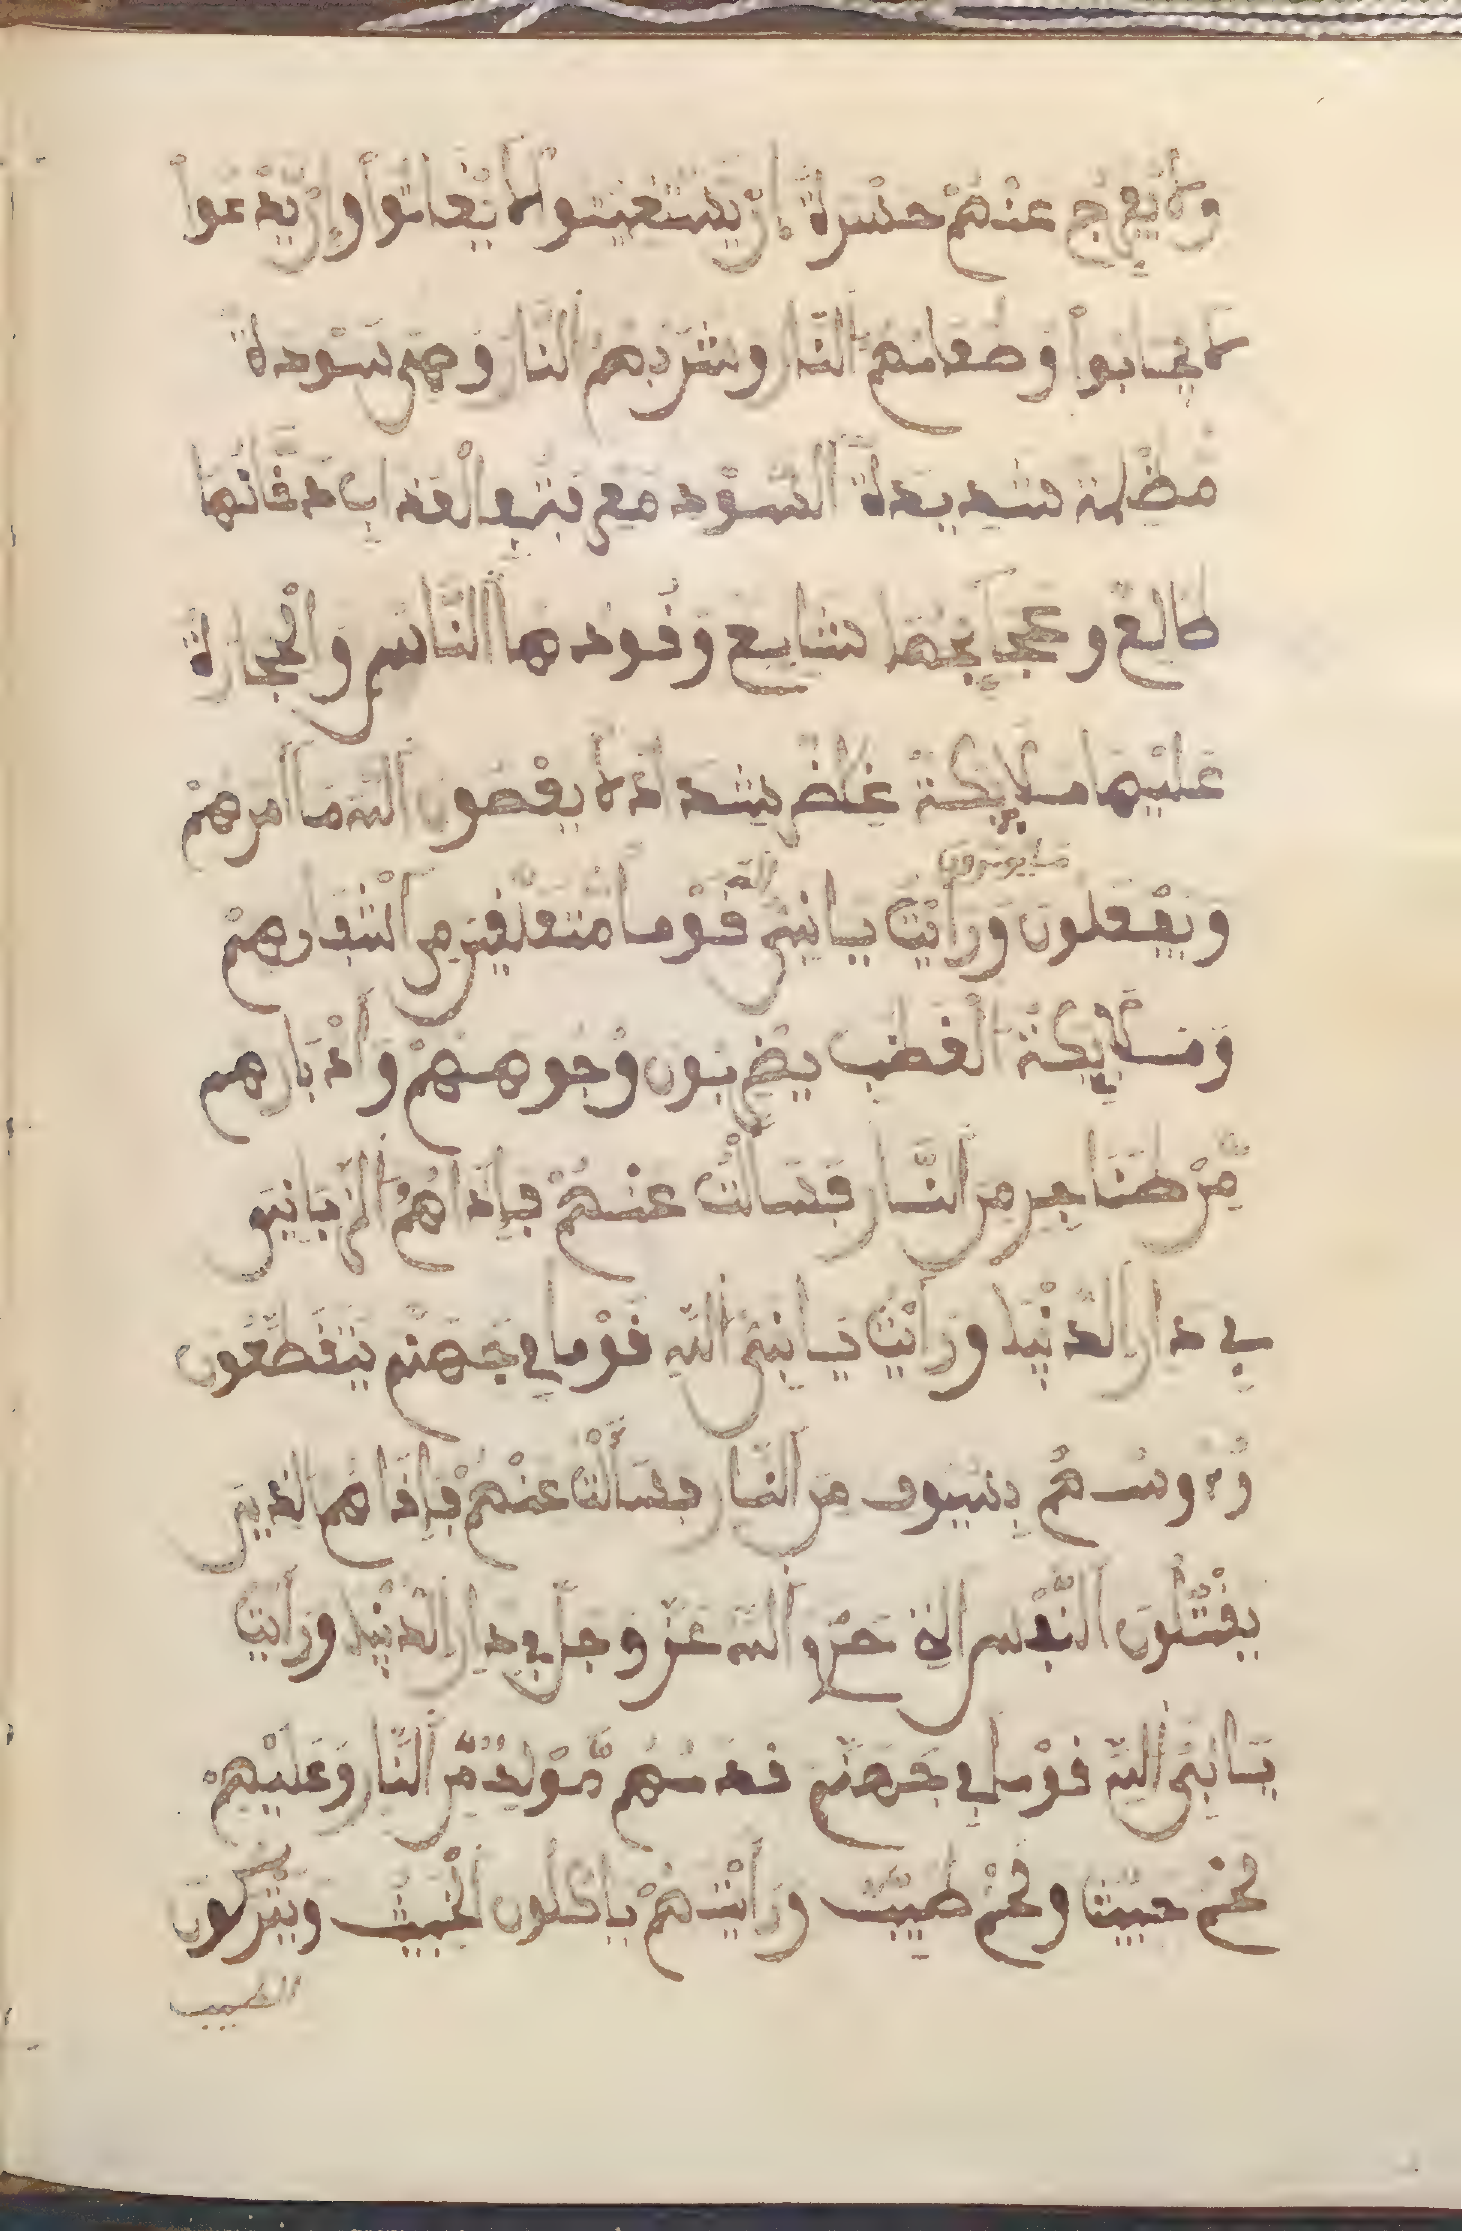 ولا يفرج عنهم حسرة إن يستغيثوا لا يغاثوا وإن يدعوا
لا يجابوا وطعامهم النار وشربهم النار وهي سودة
مظلمة شديدة السود مع
طالع و وقودها الناس والحجارة
عليها ملايكة غلظ شدد لا يعصون الله ما أمرهم
ما يومرون
ويفعلون ورأيت يا نبي الله قوما متعلقين من أشفارهم
وملايكة الغضب يضربون وجوههم وأدبارهم
من النار فسألت عنهم فإذا هم الزبانيو
في دار الدنيا ورأيت يا نبي الله قوما في جهنم يتقطعون
رءوسهم بسيوف من النار فسألت عنهم فإذا هم الذين
يقتلون النفس التي حرم الله عز وجل في دار الدنيا ورأيت
يا نبي الله قوما في جهنم من النار وعليهم
لحم خبيث ولحم طيب ورأيتهم ياكلون الخبيث ويتركون
الطيب